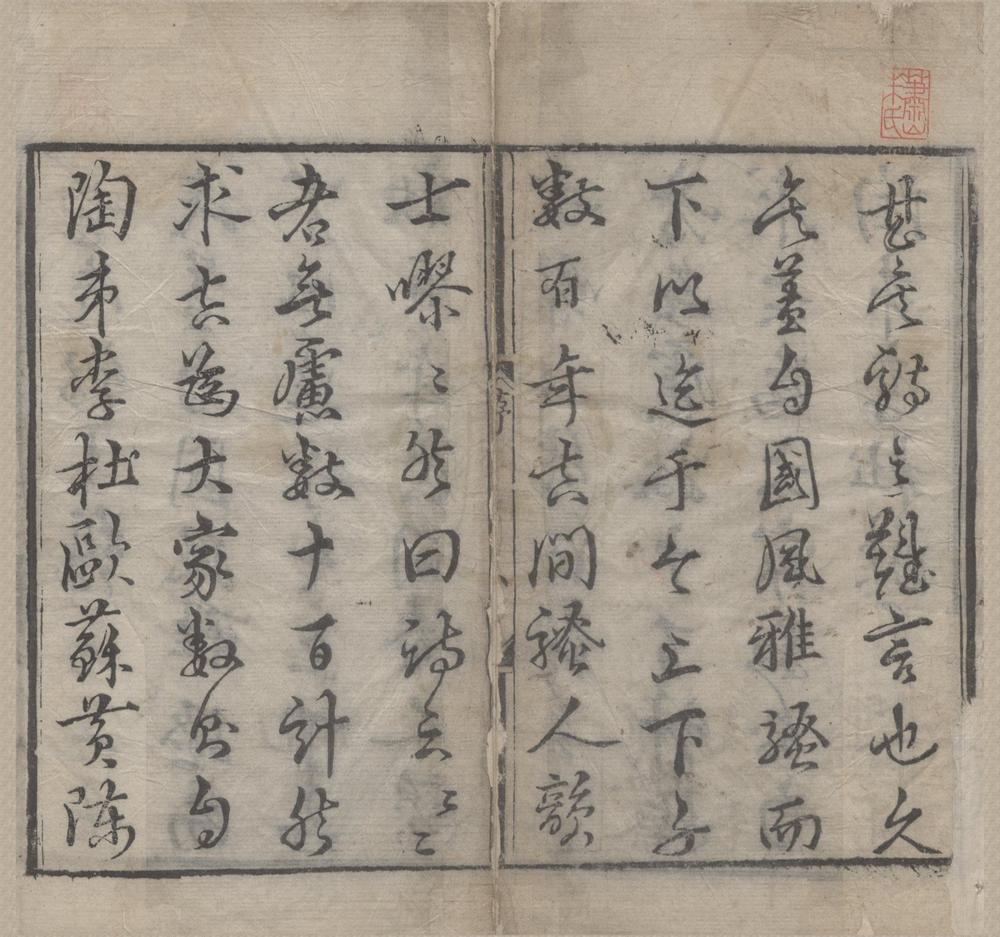 蕭山朱氏
甚矣詩之難言也久
矣蓋自國風雅騷而
下以迄于今上下千
數百年其間騷人韻
序
士嘐〻然曰詩云〻〻
者無慮數十百計然
求其為大家數則自
陶韋李杜歐蘇黃陳